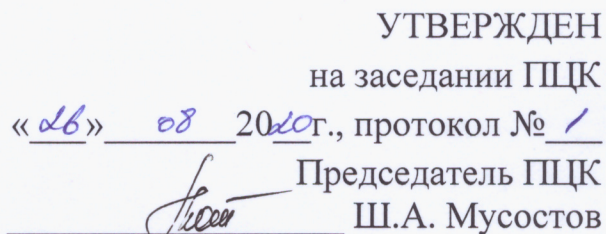 УТВЕРЖДЕН
на заседании ПЦК
«26» 08 2020г., протокол № 1
Председатель ПЦК
Ш.А. Мусостов